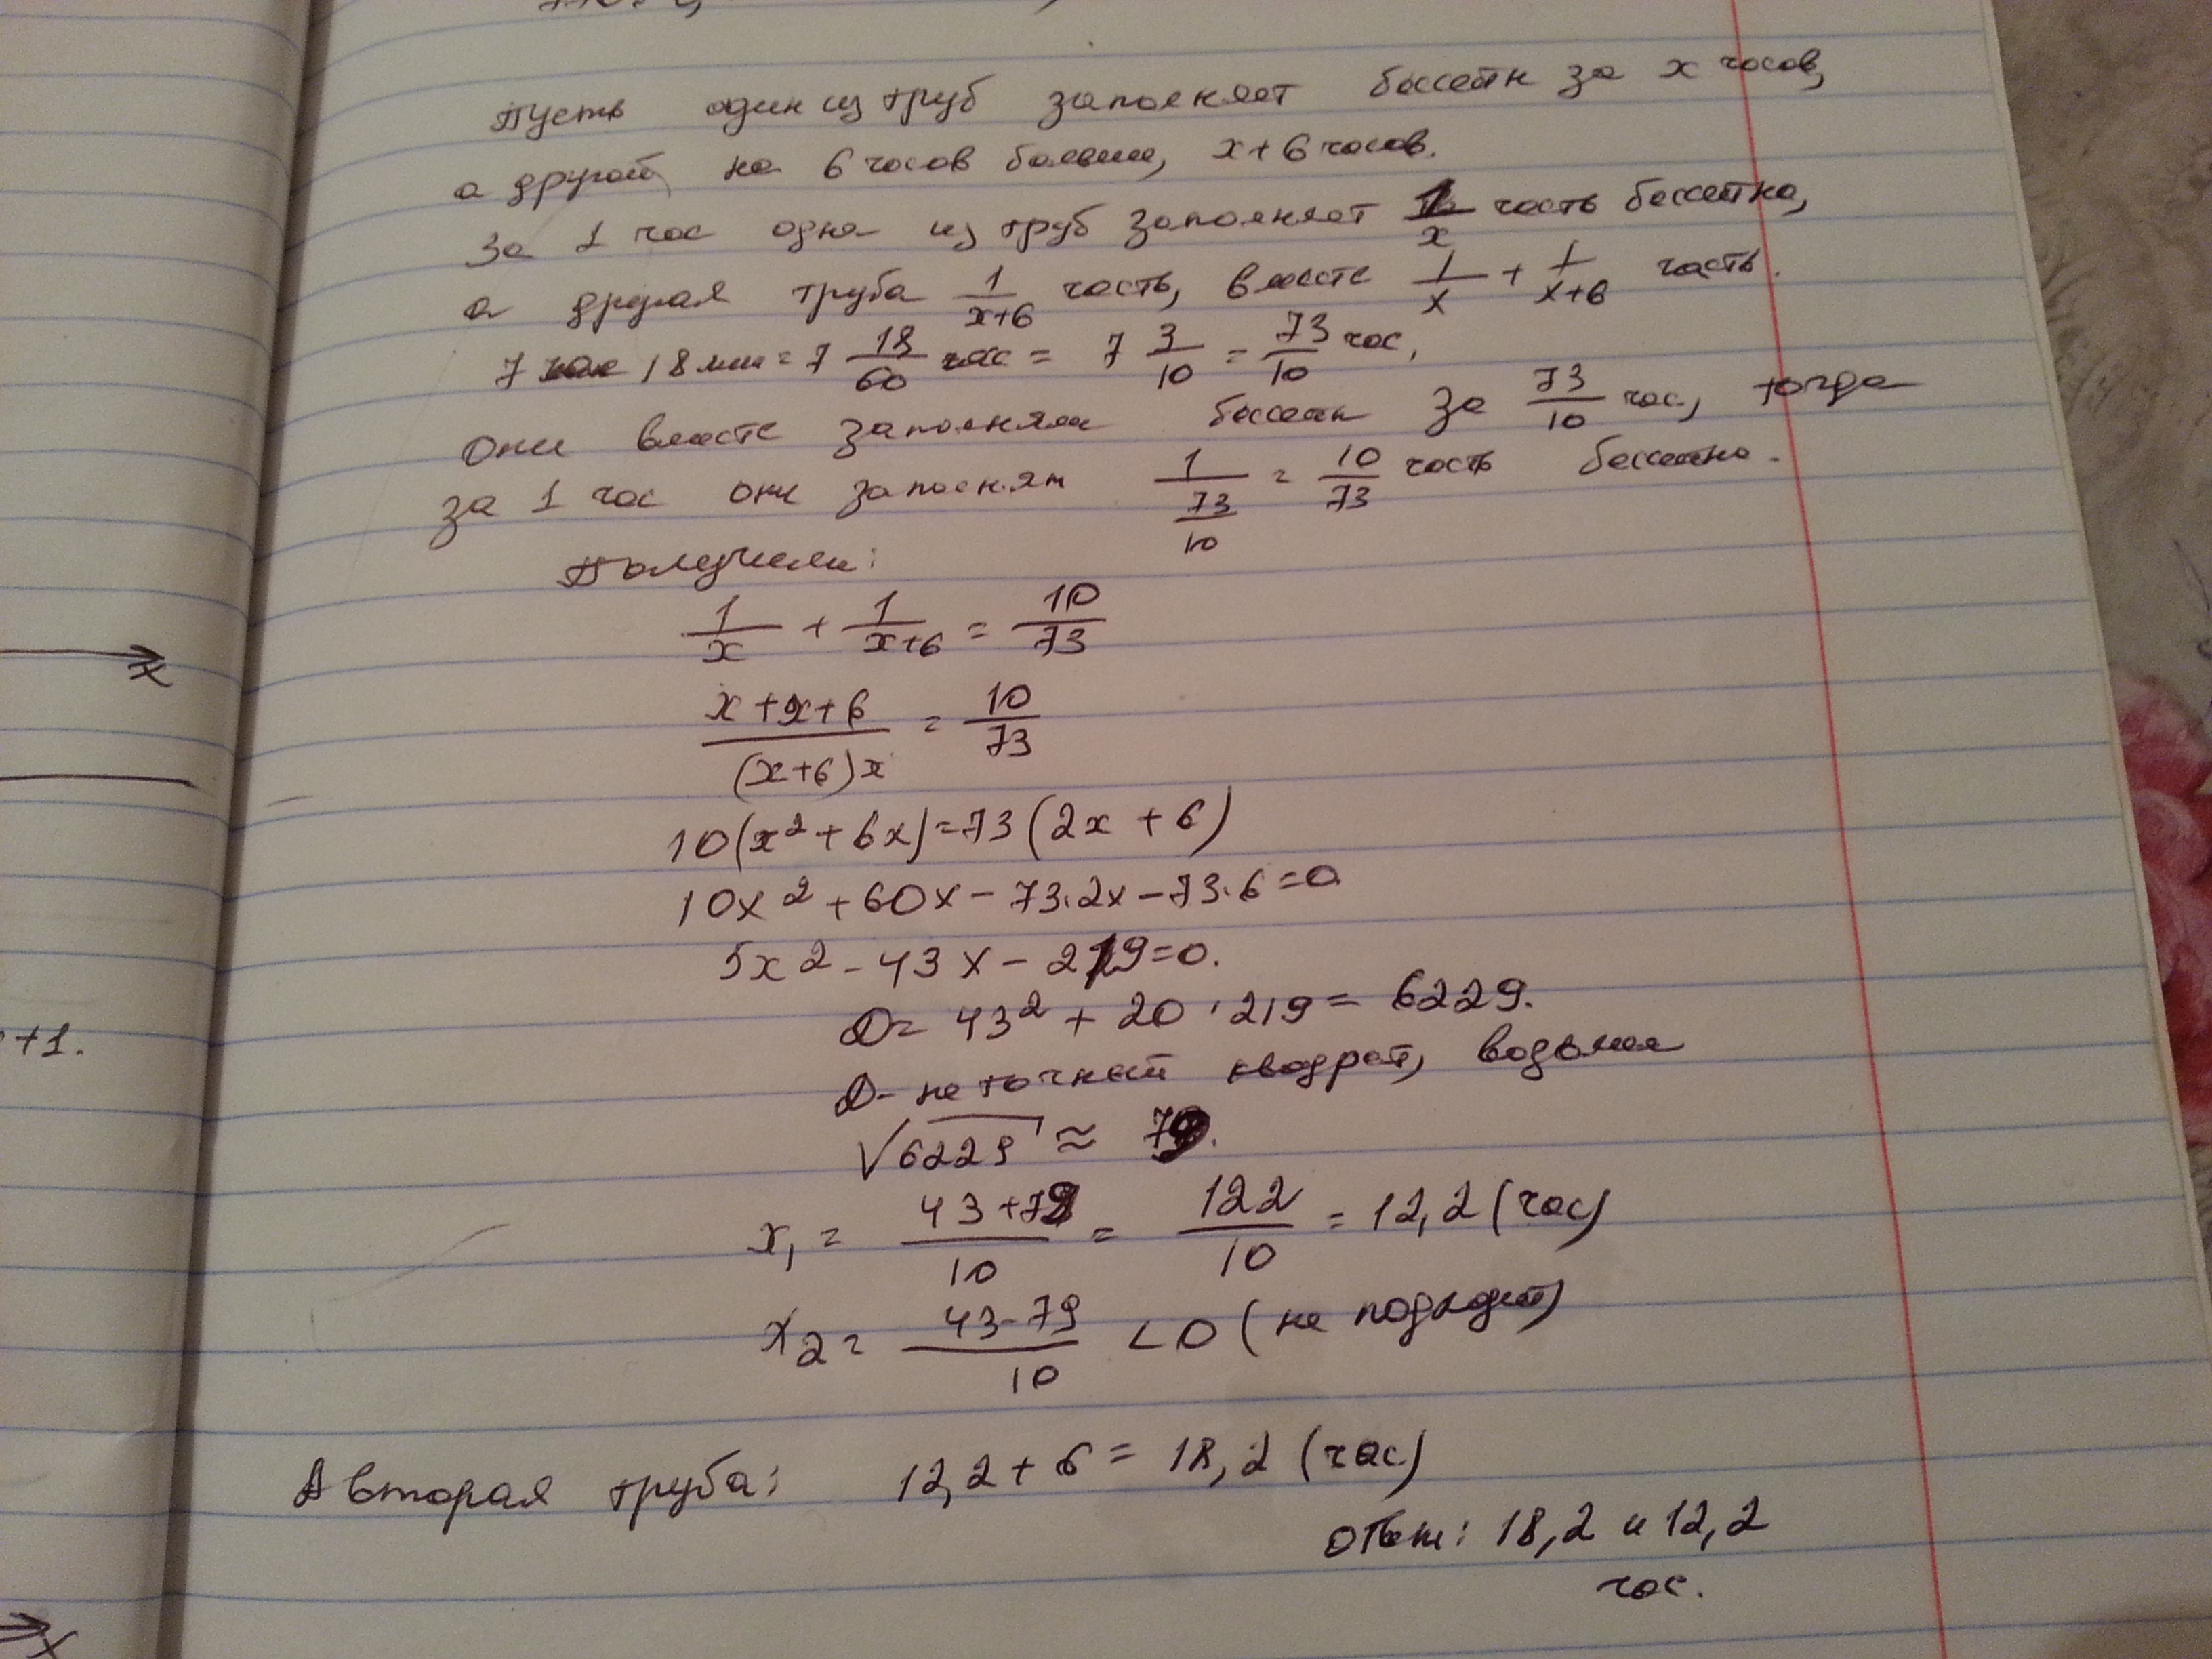 Пусть один из труб заполняет бассейн за x часов,
а другой на 6 часов больше, x+6 часов.
За 1 час одна из труб заполняет 1/x часть бассейна,
а другая труба 1/(x+6) часть, вместе 1/x + 1/(x+6) часть.
7 час 18 мин = 7 18/60 час = 7 3/10 = 73/10 час,
Они вместе заполняли бассейн за 73/10 час, тогда
за 1 час они заполнят 1/(73/10) = 10/73 часть бассейна.
Получили:
1/x + 1/(x+6) = 10/73
(x+x+6)/((x+6)x) = 10/73
10(x²+6x)=73(2x+6)
10x²+60x-73·2x-73·6=0
5x²-43x-219=0.
D=43²+20·219=6229.
D- не точный квадрат, возьмем
√6229 ≈ 79.
x₁ = (43+79)/10 = 122/10 = 12,2 (час)
x₂ = (43-79)/10 <0 (не подходит)
А вторая труба: 12,2+6=18,2 (час)
Ответ: 18,2 и 12,2
час.
x
+1.
x